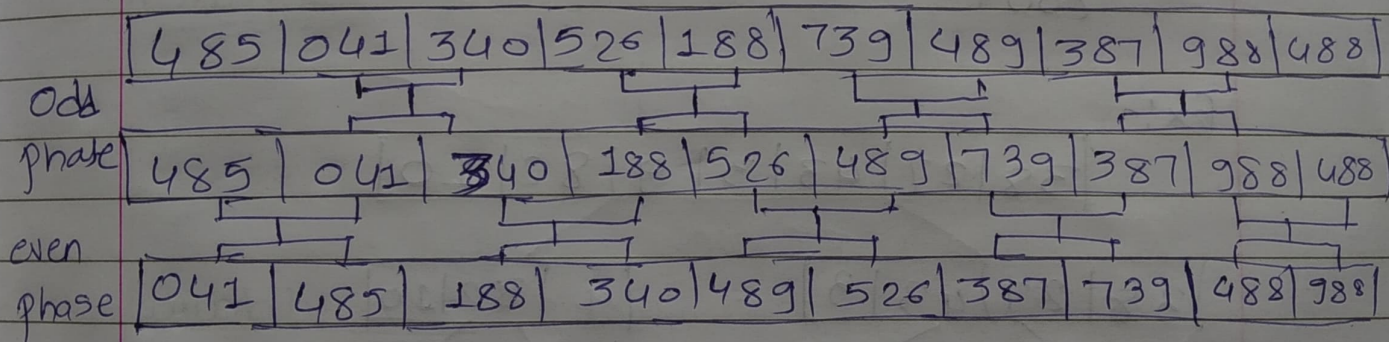 485 | 041 | 340 | 526 | 188 | 739 | 489 | 387 | 988 | 488
Odd
phase 485 | 041 | 340 | 188 | 526 | 489 | 739 | 387 | 988 | 488
even
phase 041 | 485 | 188 | 340 | 489 | 526 | 387 | 739 | 488 | 988